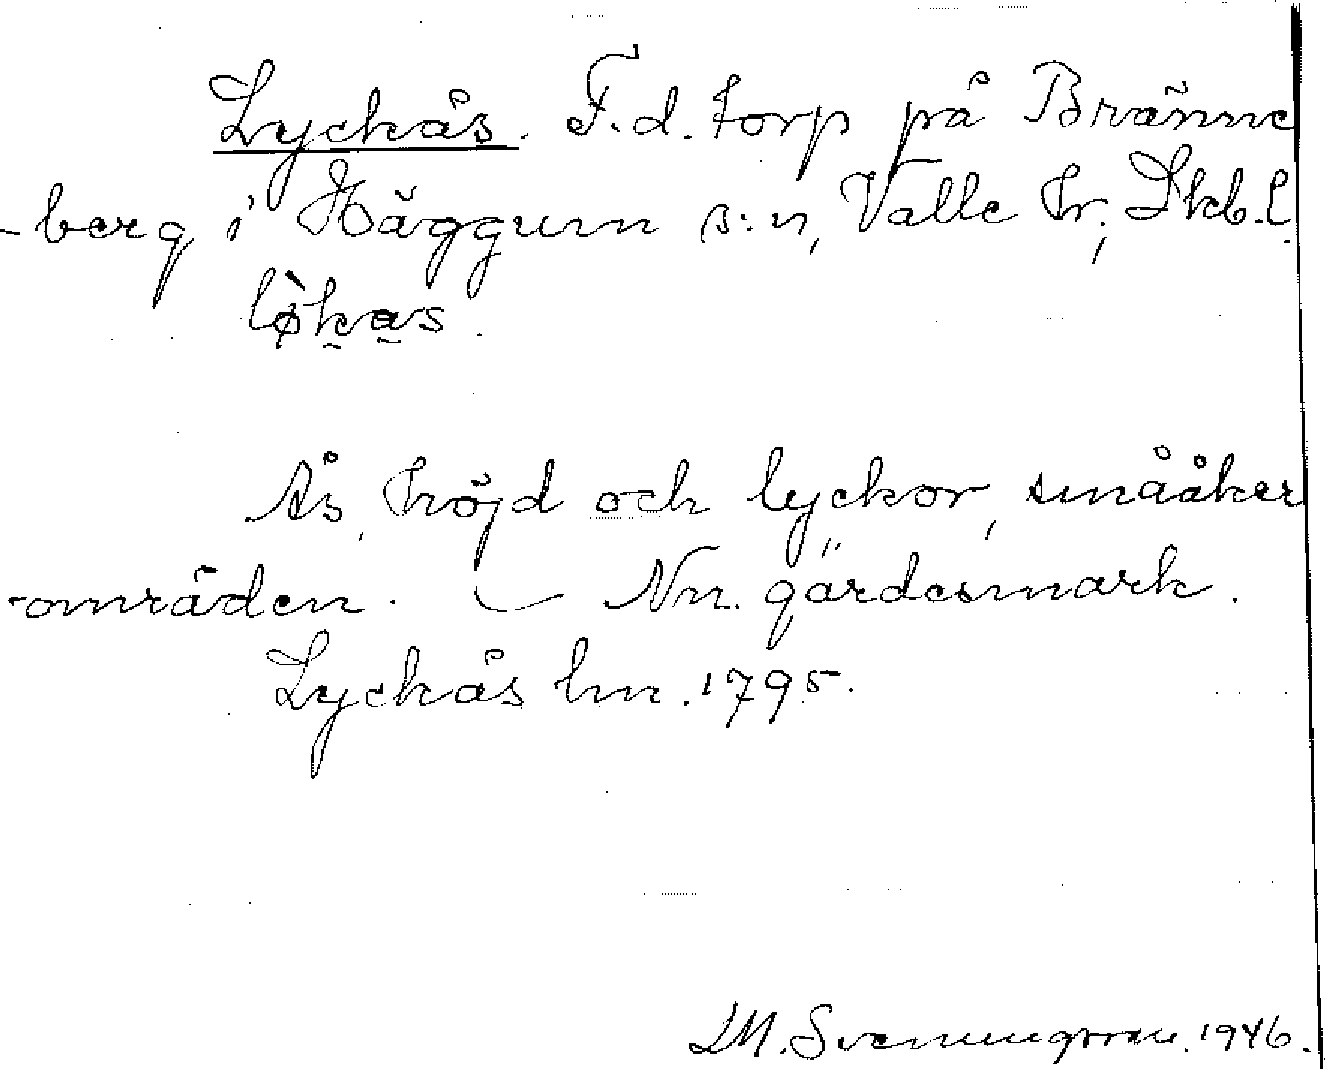 Lyckås. F.d. torp på Bränne
-berg i Häggum s:n, Valle hr; Skb.l.
lø̀kas.
Ås, höjd och lyckor, smååker
-områden. Nu gärdesmark.
Lyckås hm. 1795.
LM. Svenungsson. 1946.